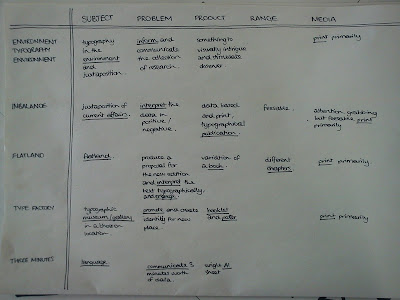 SUBJECT PROBLEM PRODUCT RANGE MEDIA
ENVIRONMENT typography inform and something to print primarily
TYPOGRAPHY in the communicate visually intrigue
ENVIRONMENT environment the of research. and
and
juxtaposition
INBALANCE juxtaposition of interpret the data based feasable. attention grabbing
current affairs. data in and print, but feasable print
positive / typographical primarily
negative. publication.
FLATLAND flatland. produce a variation of different print primarily
proposal for a book. chapters
the new edition
and interpret the
text typographically
and engage.
TYPE FACTORY typographic provide and create booklet print primarily
museum/gallery identity for new and
in a chosen place.
location
THREE MINUTES language. communicate 3 single A1
minutes worth sheet
of data